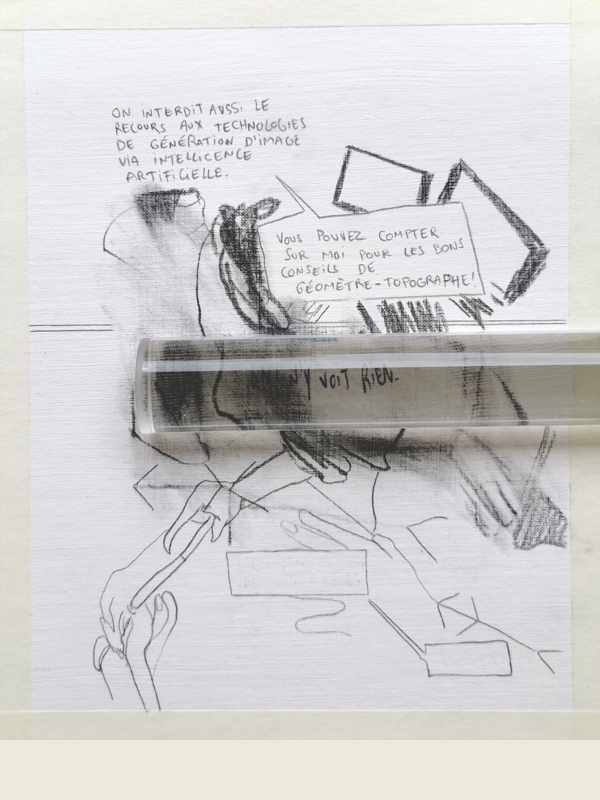 ON INTERDIT AUSSI LE
RECOURS AUX TECHNOLOGIES
DE GÉNÉRATION D'IMAGE
VIA INTELLIGENCE
ARTIFICIELLE.
VOUS POUVEZ COMPTER
SUR MOI POUR LES BONS
CONSEILS DE
GÉOMÈTRE-TOPOGRAPHE!
N'Y VOIT RIEN.